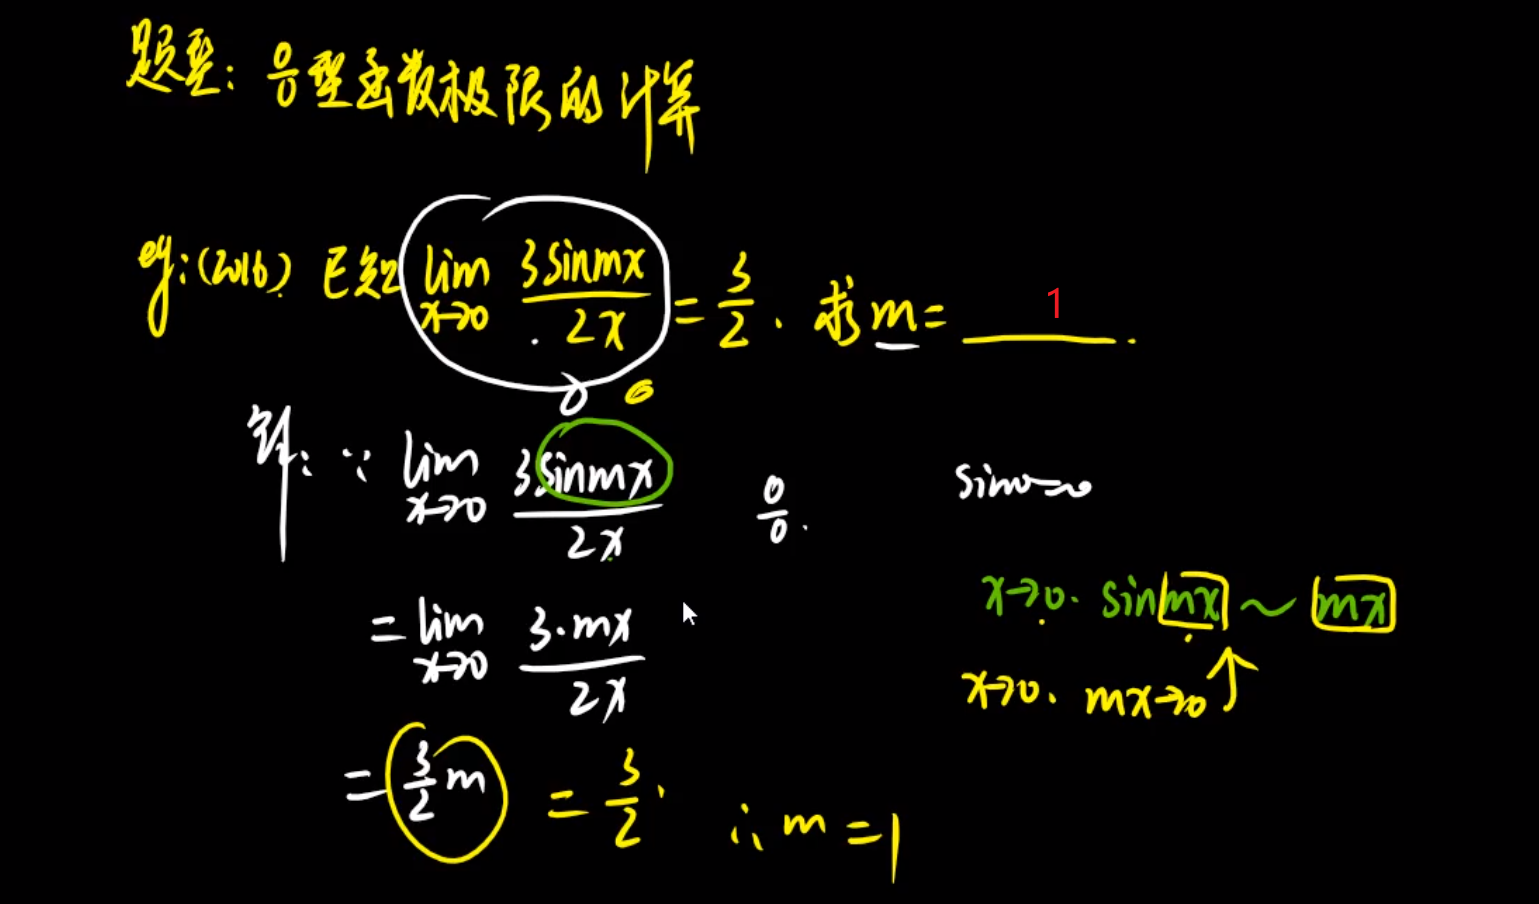 题型: 0/0型函数极限的计算
eg:(2016) 已知 lim x→0 3sinmx/2x = 3/2. 求 m = 1.
0 0
解: ∵ lim x→0 3sinmx/2x 0/0. sin0=0
= lim x→0 3·mx/2x x→0. sinmx ~ mx
x→0. mx→0 ↑
= 3/2 m = 3/2. ∴ m = 1